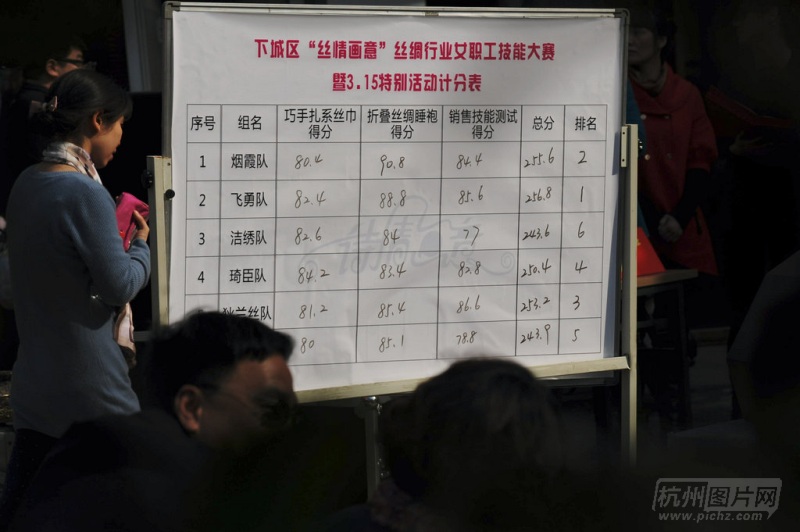 下城区“丝情画意”丝绸行业女职工技能大赛
暨3.15特别活动计分表
序号 组名 巧手扎系丝巾得分 折叠丝绸睡袍得分 销售技能测试得分 总分 排名
1 烟霞队 80.4 90.8 84.4 255.6 2
2 飞勇队 82.4 88.8 85.6 256.8 1
3 洁绣队 82.6 84 77 243.6 6
4 琦臣队 84.2 83.4 82.8 250.4 4
狄兰丝队 81.2 85.4 86.6 253.2 3
80 85.1 78.8 243.9 5
杭州图片网
www.pichz.com